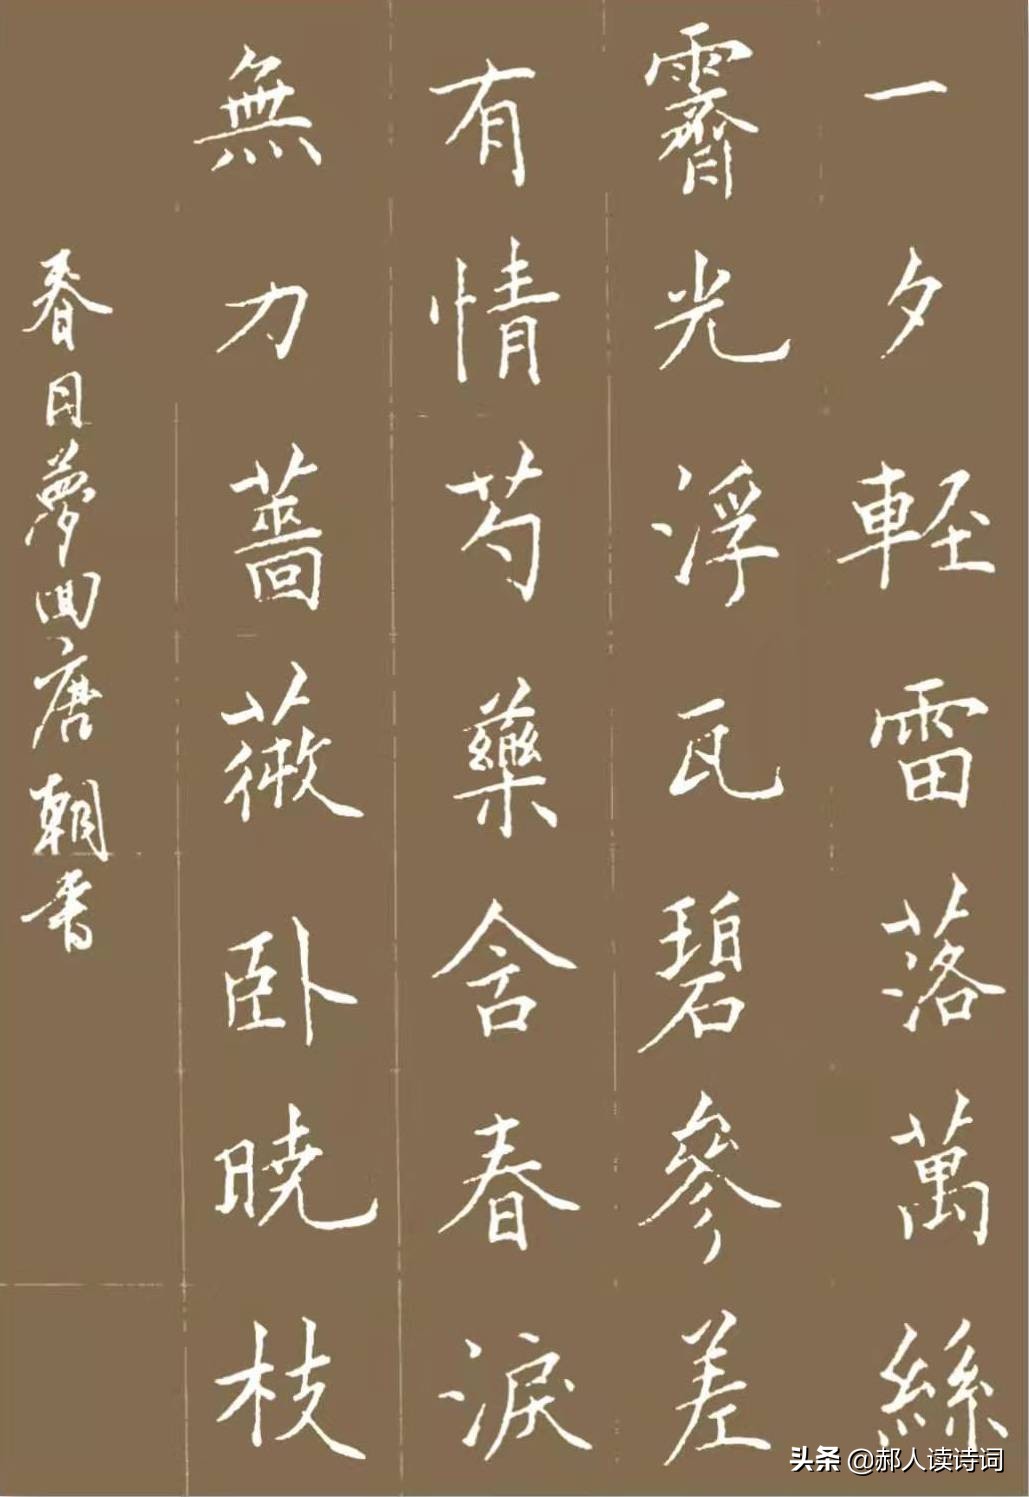 一夕軽雷落萬絲
霽光浮瓦碧參差
有情芍藥含春淚
無力薔薇卧暁枝
春日夢回唐朝書
头条 @郝人读诗词